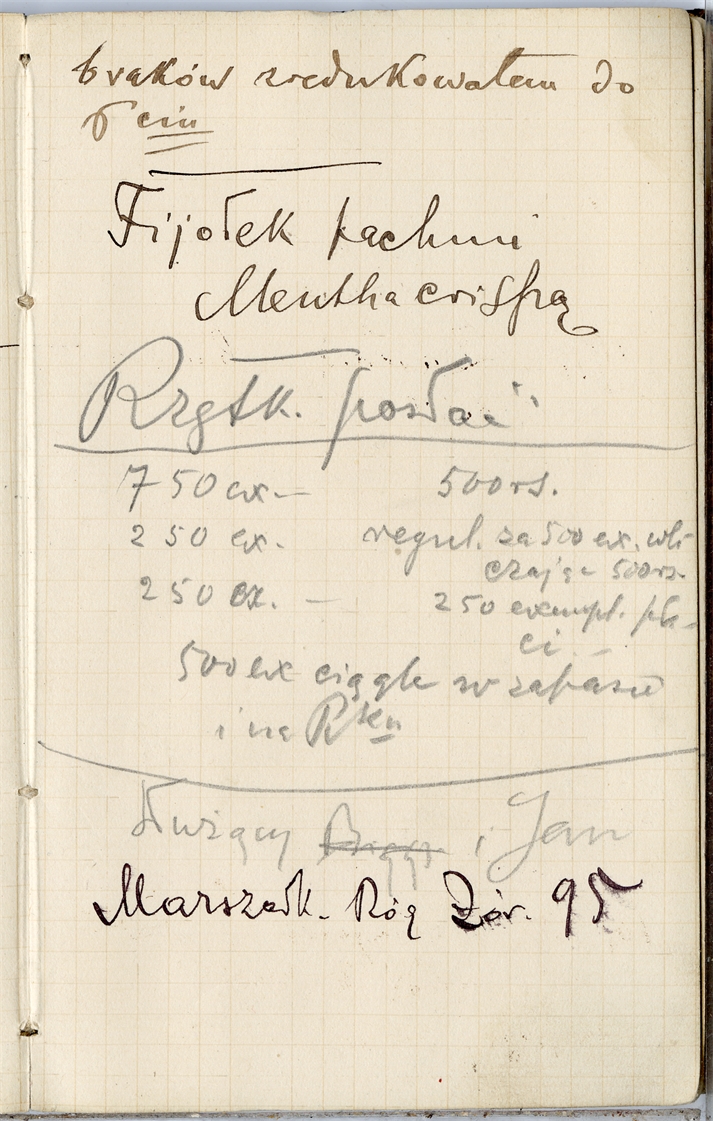 braków zredukowałem do
5 ciu
Fijołek pachni
Mentha crispą
posłać
750 ex — 500 rs.
250 ex. regul. za 500 ex. wli-
czając 500 rs.
250 ex. — 250 exempl. pła-
ci —
500 ex ciągle w zapasie
i na Rku
Służący i Jan
Marszałk. Róg Żór. 95